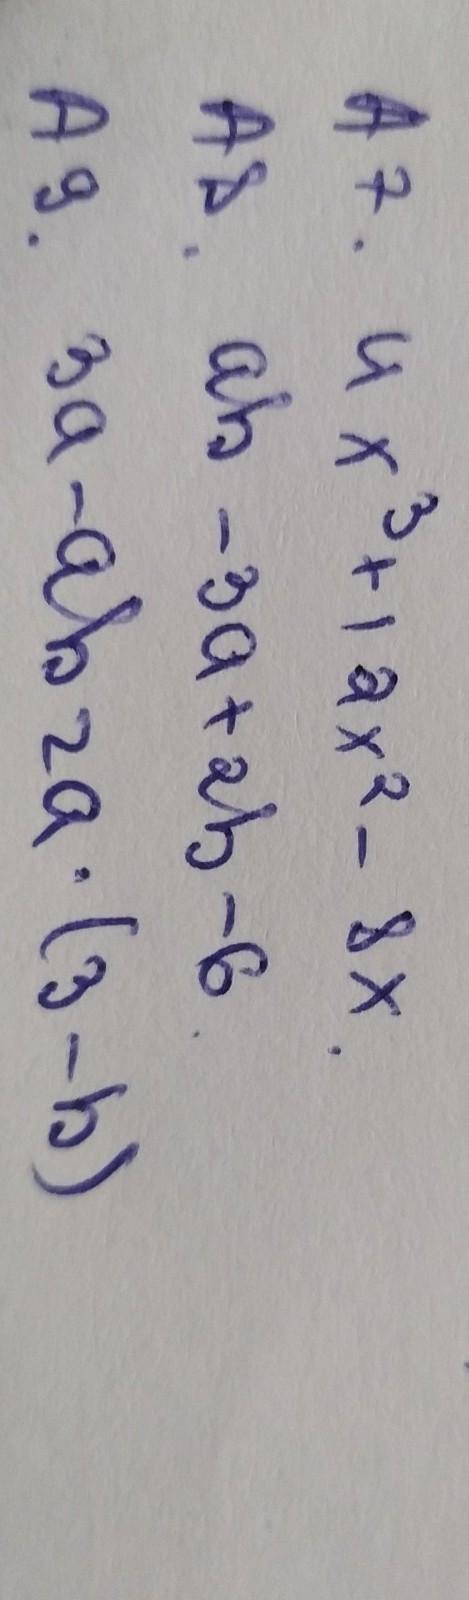 A7. 4x³+12x²-8x.
A8. ab-3a+2b-6.
A9. 3a-ab=a·(3-b)